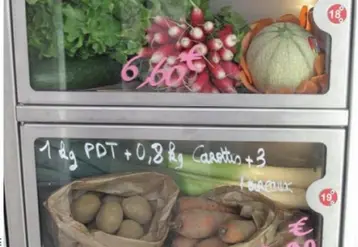 18
6,60€
1 kg PDT + 0,8 kg Carottes + 3
Poireaux
19
€